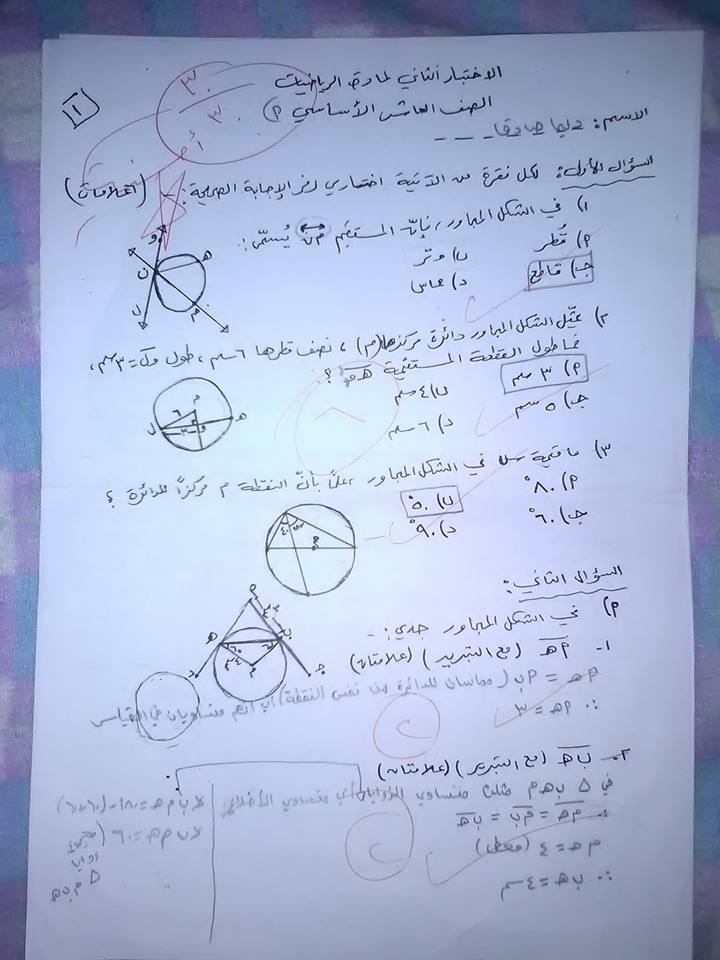 الاختبار الثاني لمادة الرياضيات
الصف العاشر الأساسي (أ)
١
٣٠
٣٠
الاسم:
السؤال الأول: لكل فقرة من الآتية اختاري رمز الإجابة الصحيحة:-
١) في الشكل المجاور، فإنّ المستقيم يُسمّى:
أ) قُطر
ب) وتر
جـ) قاطع
د) مماس
٢) يمثّل الشكل المجاور دائرة مركزها (م)، نصف قطرها ٦ سم، طول = ٣ سم،
فما طول القطعة المستقيمة هـ و ؟
أ) ٣ سم
ب) ٤ سم
جـ) ٥ سم
د) ٦ سم
٨
٣) ما قيمة س في الشكل المجاور، علمًا بأنّ النقطة م مركزًا للدائرة ؟
أ) ٨٠°
ب) ٥٠°
جـ) ٦٠°
د) ٩٠°
السؤال الثاني:
أ) في الشكل المجاور جدي:-
١- أهـ (مع التبرير) (علامتان)
أهـ = أب (مماسان للدائرة من نفس النقطة) أي أنهم متساويان في القياس
∴ أهـ = ٣
٢
٢- بهـ (مع التبرير) (علامتان)
في △ بهـم مثلث متساوي الزوايا أي متساوي الأضلاع
∴ مهـ = مب = بهـ
مهـ = ٤ (معطى)
∴ بهـ = ٤ سم
٢
مجموع
زوايا